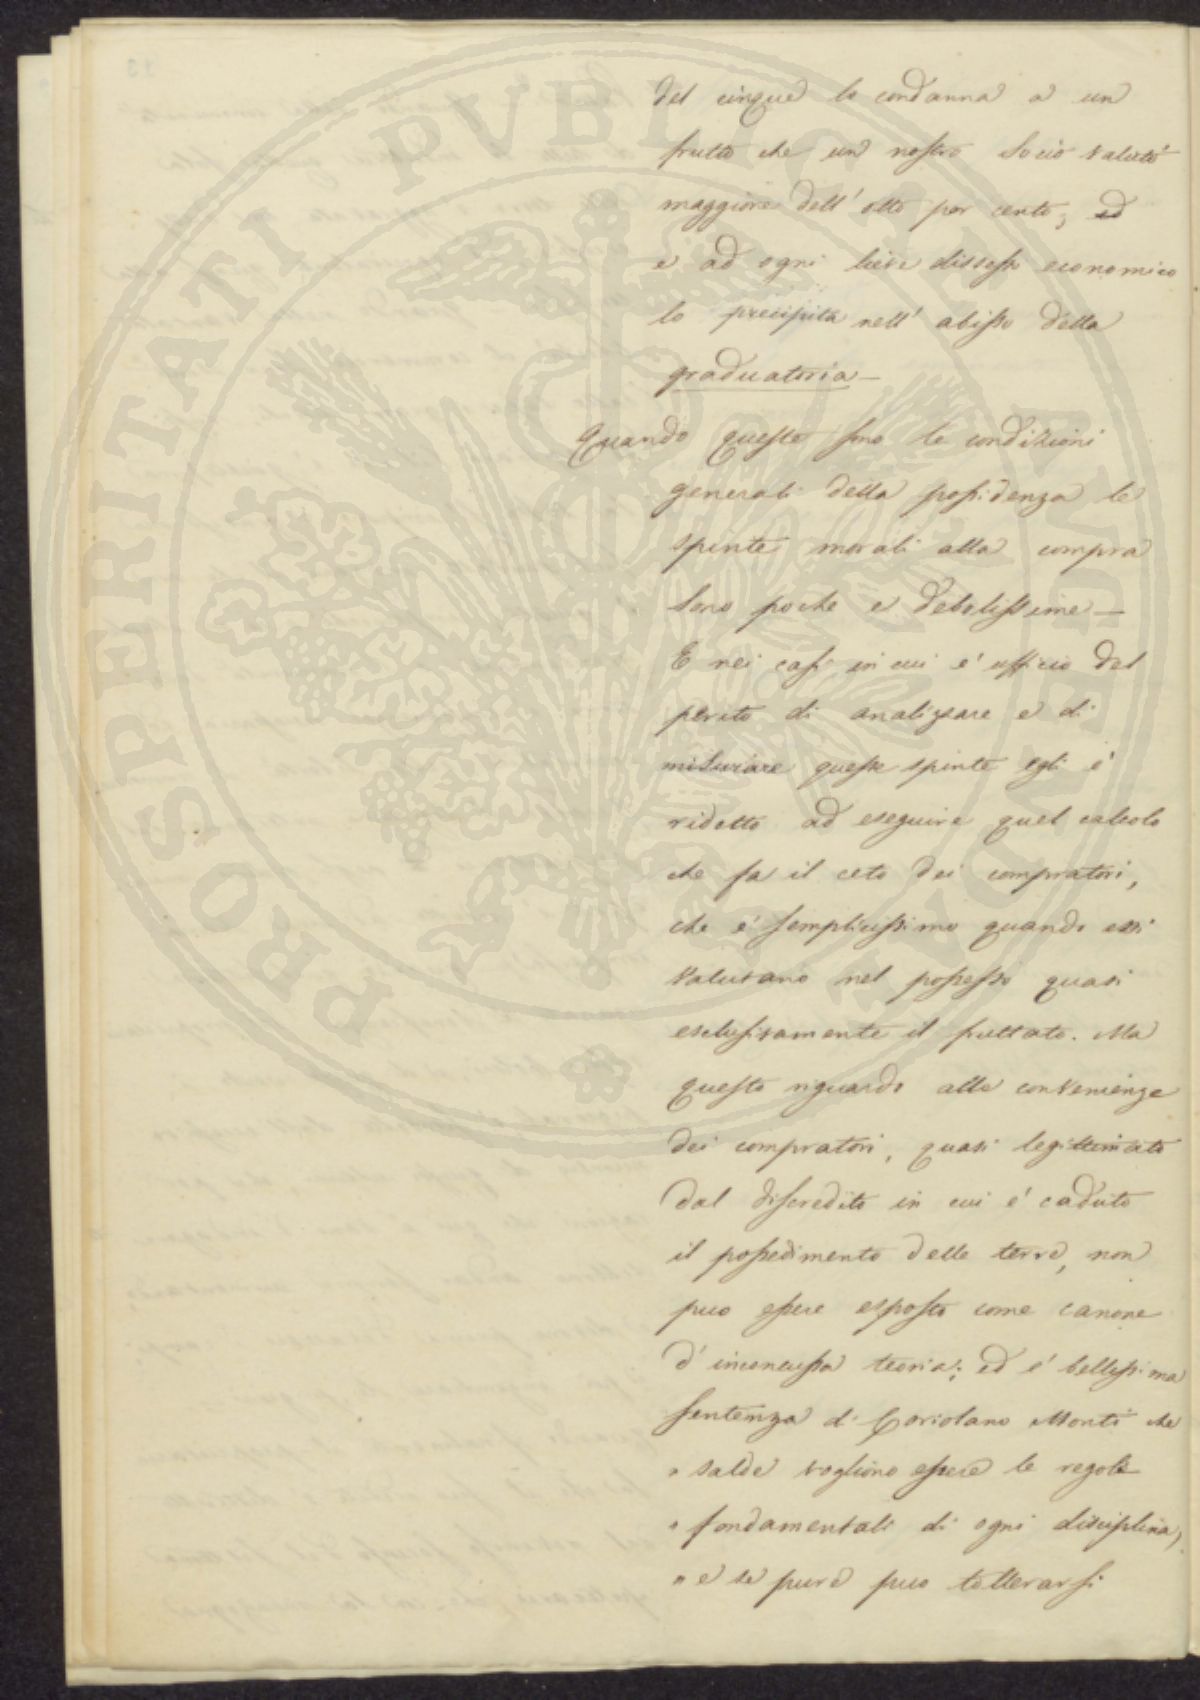 del cinque lo condanna a un
frutto che un nostro Socio valutò
maggiore dell' otto per cento, ed
e ad ogni lieve dissesto economico
lo precipita nell' abisso della
graduatoria —
Quando queste sono le condizioni
generali della possidenza le
spinte morali alla compra
sono poche e debolissime —
E nei casi in cui e' ufficio del
perito di analizzare e di
misurare queste spinte egli è
ridotto ad eseguire quel calcolo
che fa il ceto dei compratori,
che e' semplicissimo quando essi
valutano nel possesso quasi
esclusivamente il fruttato. Ma
questo riguardo alle convenienze
dei compratori, quasi legittimato
dal discredito in cui e' caduto
il possedimento delle terre, non
puo essere esposto come canone
d' inconcussa teoria; ed e' bellissima
sentenza di Coriolano Monti che
" salde vogliono essere le regole
" fondamentali di ogni disciplina,
" e se pure puo tollerarsi
PROSPERITATI PVBLICAE AVGENDAE